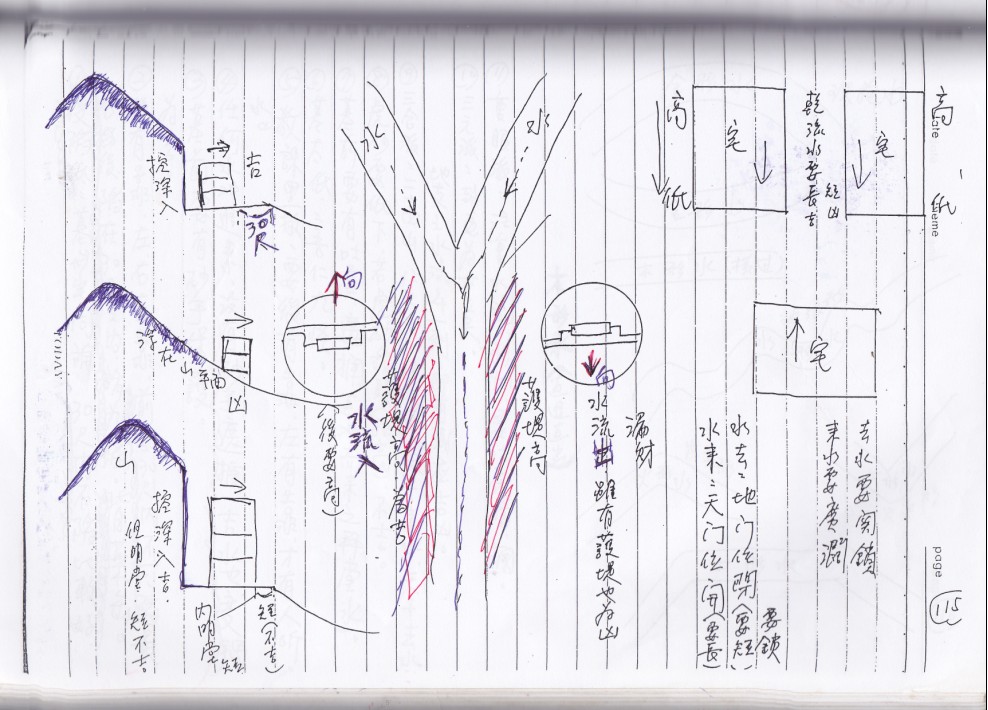 高
低
宅
乾流水要長吉
短凶
宅
高
低
宅
去水要関鎖
來小要廣濶
水去:地门位閉(要短)
要鎖
水来:天门位開(要長)
page
115
水
水
護堤高
護堤高 為吉
向
水流出雖有護堤也為凶
漏財
向
水流入
(後要高)
挖深入
吉
30尺
浮在山
凶
山
挖深入吉.
但明堂.短不吉
内明堂短
短(不吉)